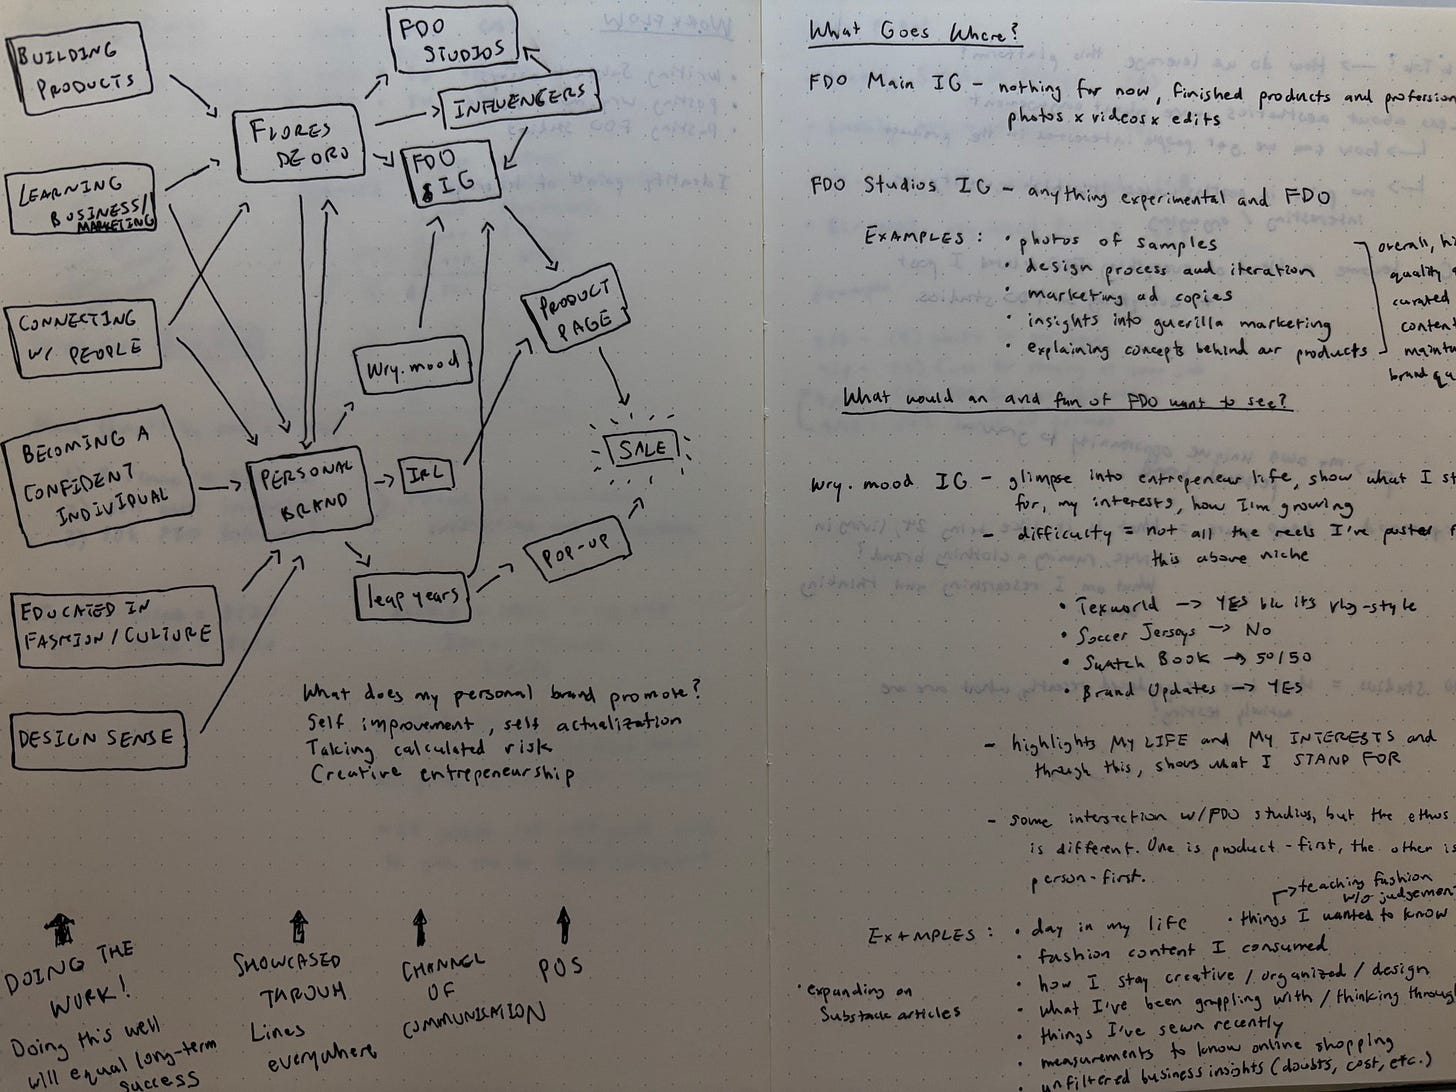 BUILDING
PRODUCTS
LEARNING
BUSINESS/
MARKETING
CONNECTING
W/ PEOPLE
BECOMING A
CONFIDENT
INDIVIDUAL
EDUCATED IN
FASHION / CULTURE
DESIGN SENSE
FLORES
DE ORO
PERSONAL
BRAND
FDO
STUDIOS
INFLUENCERS
FDO
IG
Wry.mood
IRL
leap years
PRODUCT
PAGE
POP-UP
SALE
What does my personal brand promote?
Self improvement, self actualization
Taking calculated risk
Creative entrepeneurship
DOING THE
WORK!
Doing this well
will equal long-term
success
SHOWCASED
THROUGH
Lines
everywhere
CHANNEL
OF
COMMUNICATION
POS
What Goes Where?
FDO Main IG - nothing for now, finished products and profession
photos x videos x edits
FDO Studios IG - anything experimental and FDO
EXAMPLES: • photos of samples
• design process and iteration
• marketing ad copies
• insights into guerilla marketing
• explaining concepts behind our products
overall, hi
quality
curated
conten
maint
brand qu
What would an and fan of FDO want to see?
wry.mood IG - glimpse into entrepeneur life, show what I st
for, my interests, how I'm growing
- difficulty = not all the reels I've posted f
this above niche
• Texworld → YES b/c its vlog-style
• Soccer Jerseys → No
• Swatch Book → 50/50
• Brand Updates → YES
- highlights MY LIFE and MY INTERESTS and
through this, shows what I STAND FOR
- some intersection w/FDO studios, but the ethos
is different. One is product-first, the other is
person-first.
→ teaching fashion
w/o judgement
EXAMPLES: • day in my life • things I wanted to know
• fashion content I consumed
• how I stay creative / organized / design
• what I've been grappling with / thinking through
• things I've sewn recently
• measurements to know online shopping
• unfiltered business insights (doubts, cost, etc.)
• expanding on
Substack articles